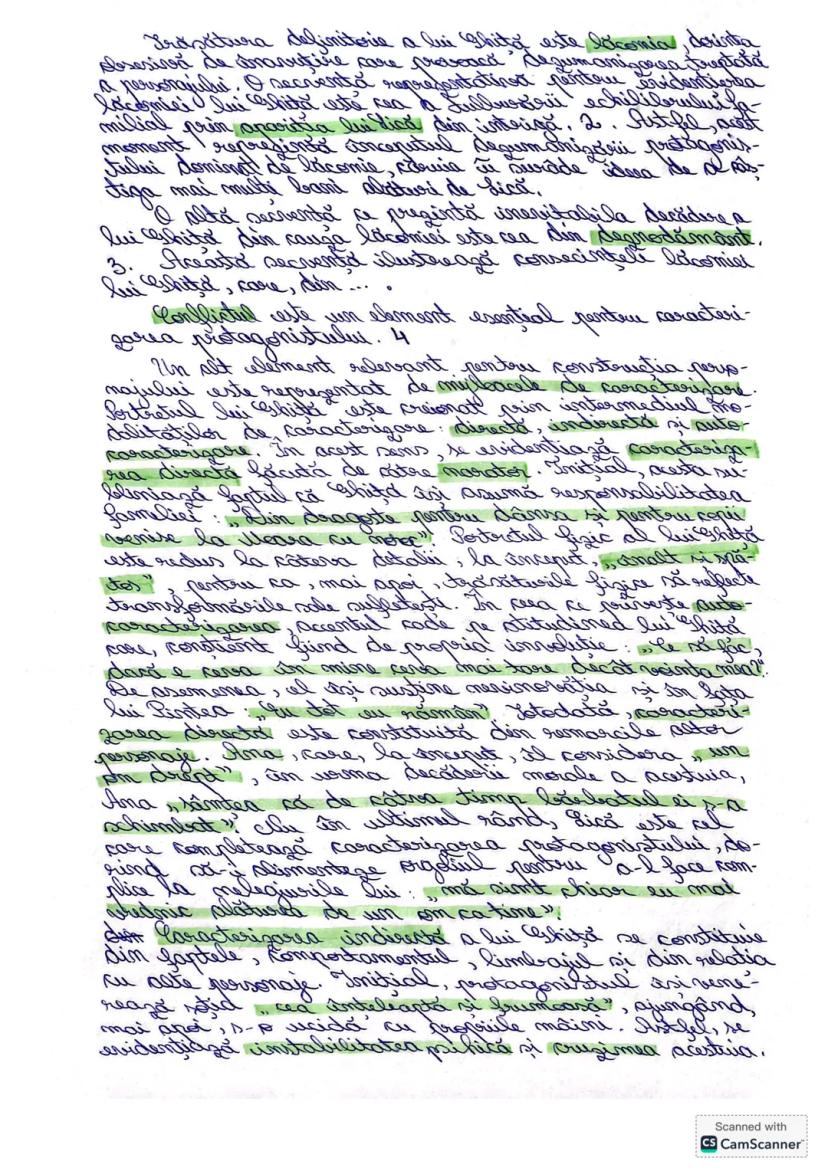 Trăsătura definitorie a lui Ghiță este lăcomia, dorința
obsesivă de înavuțire care provoacă dezumanizarea treptată
a personajului. O secvență reprezentativă pentru evidențierea
lăcomiei lui Ghiță este cea a tulburării echilibrului fa-
milial prin apariția lui Lică din intrigă. 2. Astfel, acest
moment reprezintă începutul dezumanizării protagonis-
tului dominat de lăcomie, căruia îi surâde ideea de a câș-
tiga mai mulți bani alături de Lică.
O altă secvență ce prezintă inevitabila decădere a
lui Ghiță din cauza lăcomiei este cea din deznodământ.
3. Această secvență ilustrează consecințele lăcomiei
lui Ghiță, care, din ... .
Conflictul este un element esențial pentru caracteri-
zarea protagonistului. 4
Un alt element relevant pentru construcția perso-
najului este reprezentat de mijloacele de caracterizare.
Portretul lui Ghiță este creionat prin intermediul mo-
dalităților de caracterizare: directă, indirectă și auto-
caracterizare. În acest sens, se evidențiază caracteriza-
rea directă făcută de către narator. Inițial, acesta su-
bliniază faptul că Ghiță își asumă responsabilitatea
familiei: „Din dragoste pentru dânsa și pentru copii
venise la Moara cu noroc". Portretul fizic al lui Ghiță
este redus la câteva detalii; la început, „înalt și spă-
tos", pentru ca, mai apoi, trăsăturile fizice să reflecte
transformările sale sufletești. În ceea ce privește auto-
caracterizarea, accentul cade pe atitudinea lui Ghiță
care, conștient fiind de propria involuție: „Ce să fac,
dacă e ceva în mine ceva mai tare decât voința mea?".
De asemenea, el își susține nevinovăția și în fața
lui Pintea: „Eu tot eu rămân". Totodată, caracteri-
zarea directă este constituită din remarcile altor
personaje. Ana, care, la început, îl considera „un
om drept", în urma decăderii morale a acestuia,
Ana „simțea că de câtva timp bărbatul ei s-a
schimbat". Nu în ultimul rând, Lică este cel
care completează caracterizarea protagonistului, do-
rind să-i alimenteze orgoliul pentru a-l face com-
plice la nelegiurile lui: „mă simt chiar eu mai
vrednic alături de un om ca tine".
Caracterizarea indirectă a lui Ghiță se constituie
din faptele, comportamentul, limbajul și din relația
cu alte personaje. Inițial, protagonistul își vene-
rează soția „cea înțeleaptă și frumoasă", ajungând,
mai apoi, s-o ucidă cu propriile mâini. Astfel, se
evidențiază instabilitatea psihică și cruzimea acestuia.
Scanned with
CS CamScanner